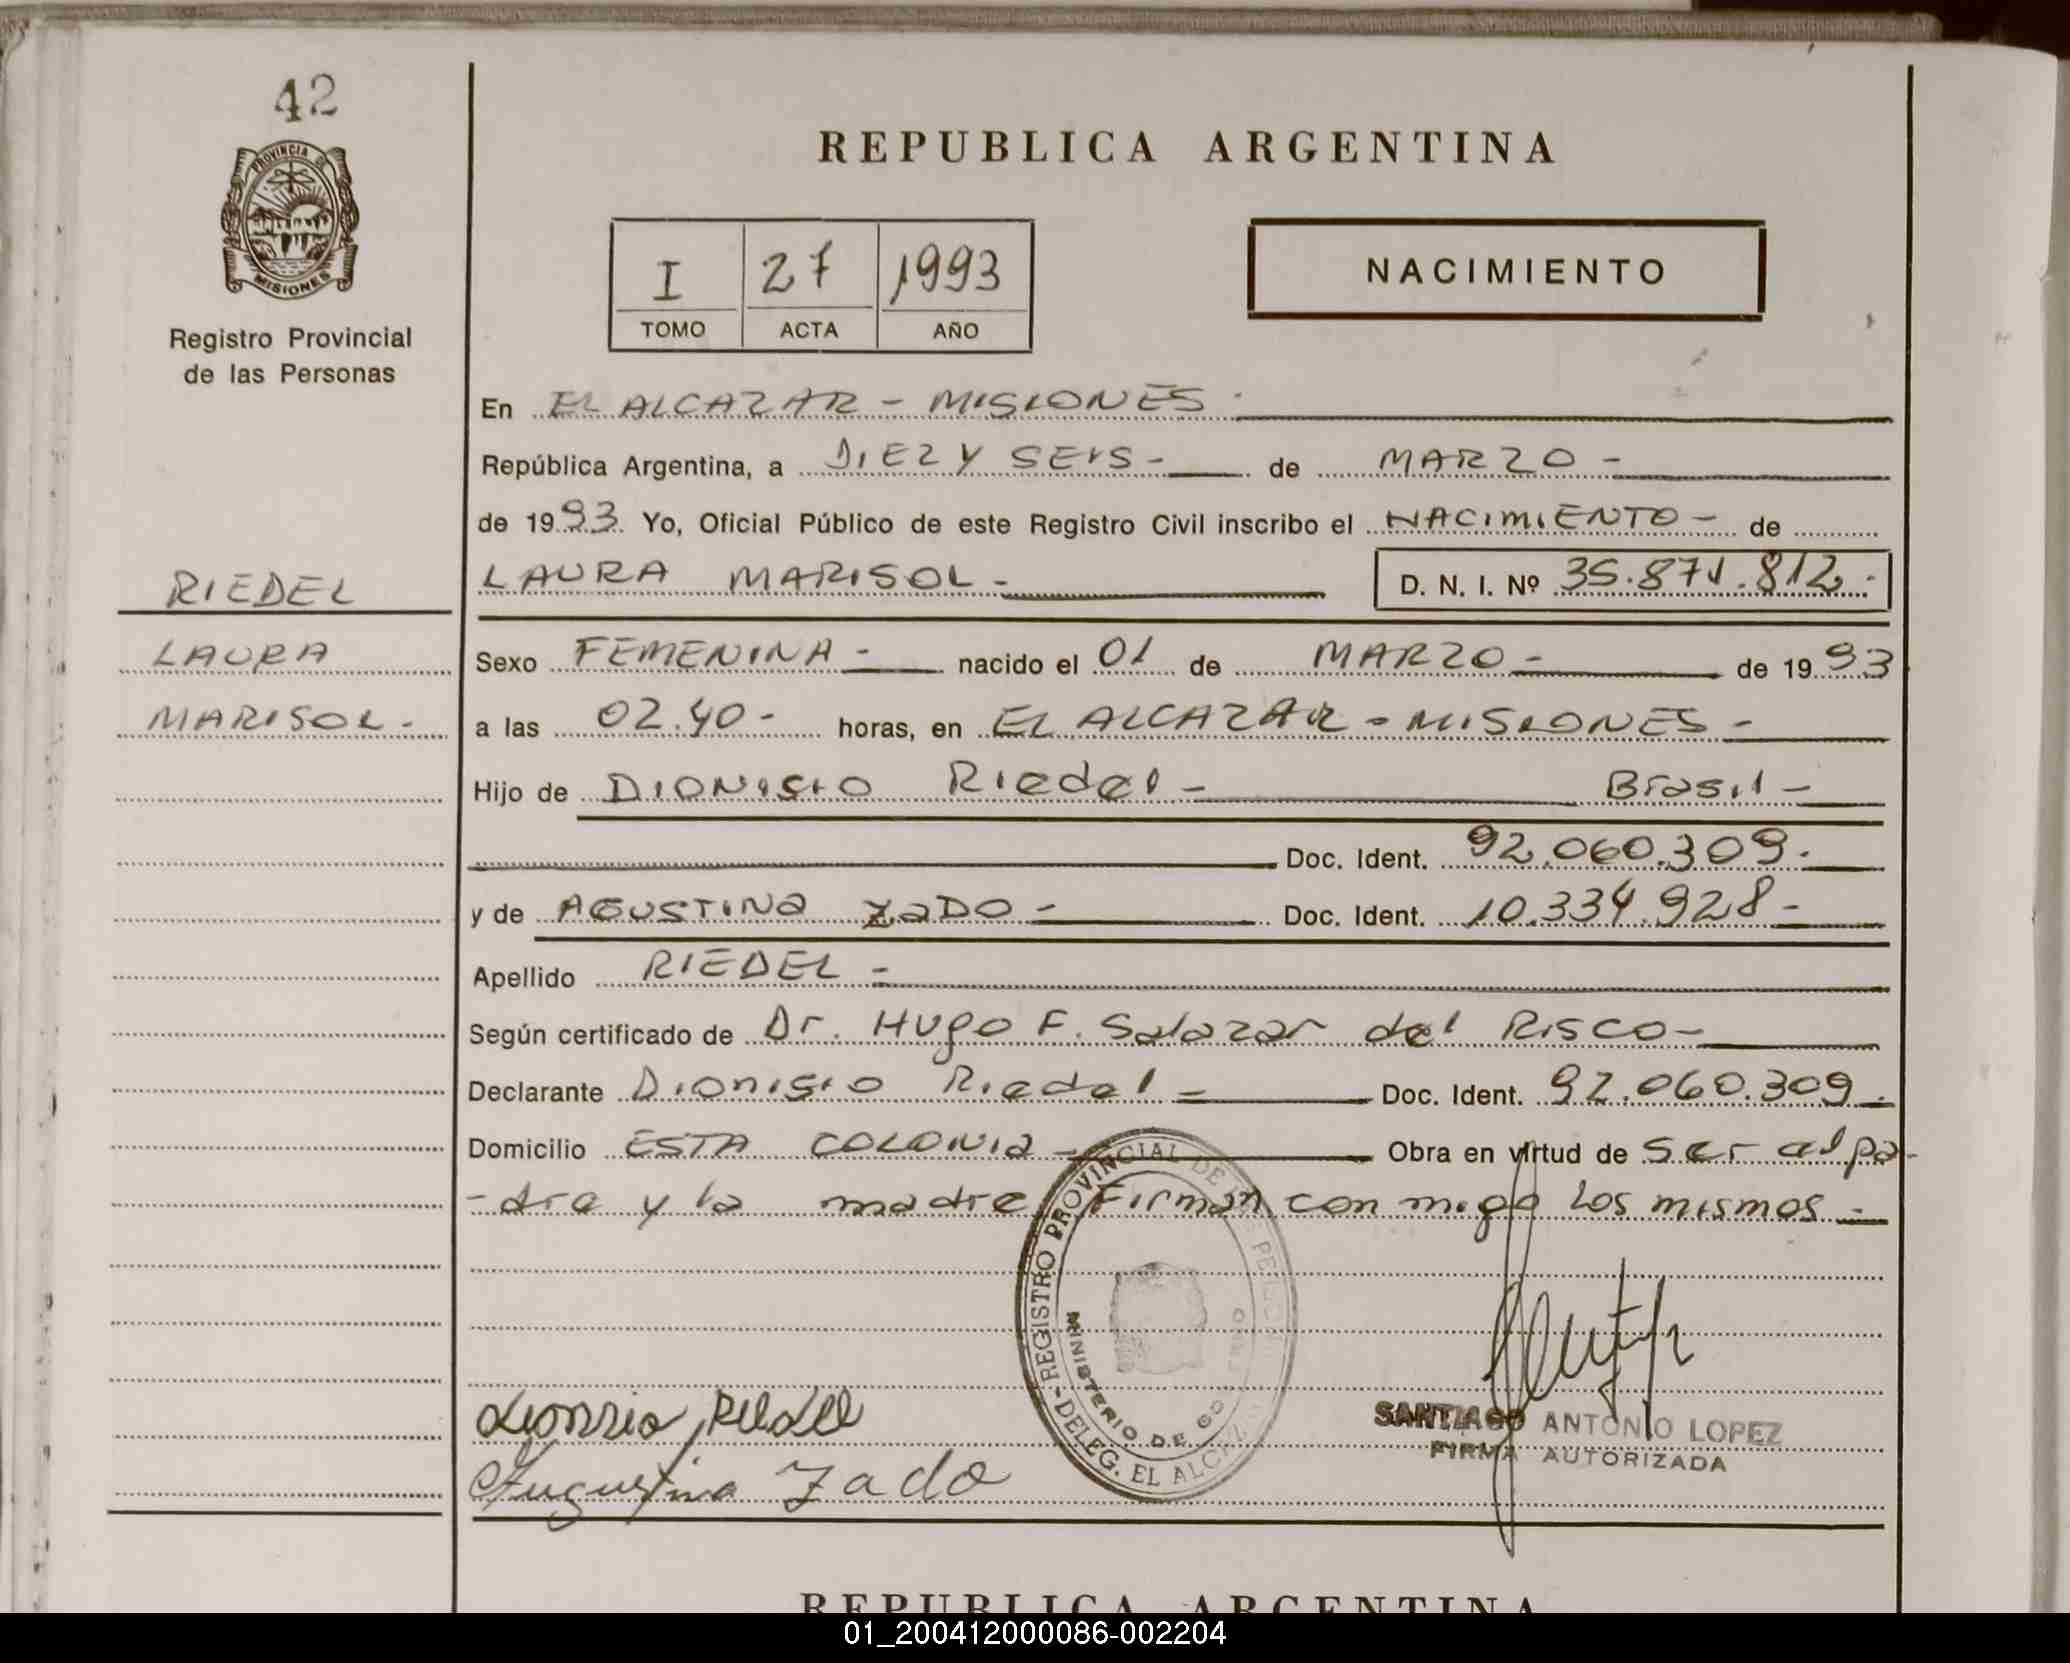 42
PROVINCIA DE
MISIONES
Registro Provincial
de las Personas
RIEDEL
LAURA
MARISOL -
REPUBLICA ARGENTINA
I 27 1993
TOMO ACTA AÑO
NACIMIENTO
En EL ALCAZAR - MISIONES -
República Argentina, a DIEZ Y SEIS - de MARZO -
de 1993. Yo, Oficial Público de este Registro Civil inscribo el NACIMIENTO - de
LAURA MARISOL - D. N. I. Nº 35.871.812 -
Sexo FEMENINA - nacido el 01 de MARZO - de 1993
a las 02.40 - horas, en EL ALCAZAR - MISIONES -
Hijo de DIONISIO Riedel - Brasil -
Doc. Ident. 92.060.309 -
y de AGUSTINA ZADO - Doc. Ident. 10.334.928 -
Apellido RIEDEL -
Según certificado de Dr. Hugo F. Salazar del Risco -
Declarante Dionisio Riedel - Doc. Ident. 92.060.309 -
Domicilio ESTA COLONIA - Obra en virtud de Ser el pa-
-dre y la madre Firman con migo Los mismos -
REGISTRO PROVINCIAL DE
- DELEG. EL ALCAZ
MINISTERIO DE GOBIERNO
Dionisio Riedel
Augustina Zado
SANTIAGO ANTONIO LOPEZ
FIRMA AUTORIZADA
REPUBLICA ARGENTINA
01_200412000086-002204